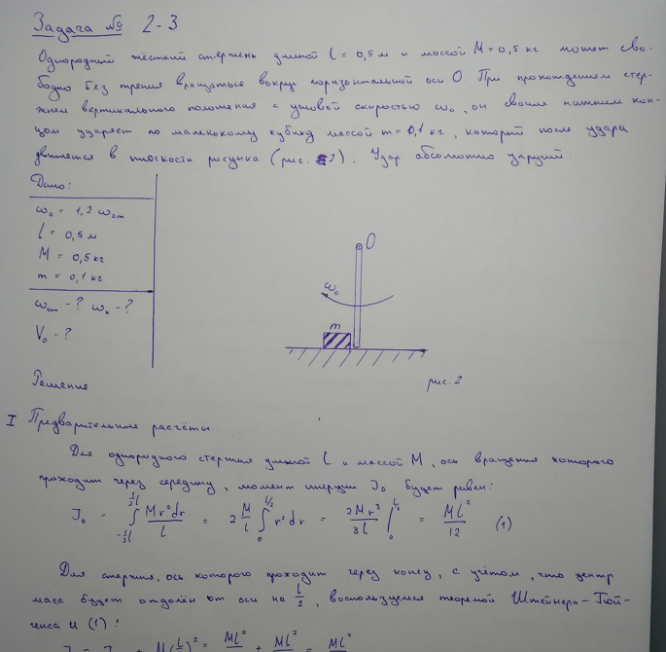 Задача № 2-3
Однородный жёсткий стержень длиной l = 0,5 м и массой M = 0,5 кг может сво-
бодно без трения вращаться вокруг горизонтальной оси O. При прохождении стер-
жнем вертикального положения с угловой скоростью ω₀, он своим нижним кон-
цом ударяет по маленькому кубику массой m = 0,1 кг, который после удара
движется в плоскости рисунка (рис. 2). Удар абсолютно упругий.
Дано:
ω₀ = 1,2 ω
l = 0,5 м
M = 0,5 кг
m = 0,1 кг
- ? - ?
V₀ - ?
O
ω₀
m
рис. 2
Решение
I Предварительные расчёты
Для однородного стержня длиной l и массой M, ось вращения которого
проходит через середину, момент инерции J₀ будет равен:
J₀ = ∫_{-½l}^{½l} Mr²dr/l = 2 M/l ∫_0^{l/2} r²dr = 2Mr³/3l |_0^{l/2} = Ml²/12 (1)
Для стержня, ось которого проходит через конец, с учётом, что центр
масс будет отдалён от оси на l/2, воспользуемся теоремой Штейнера-Гюй-
генса и (1):